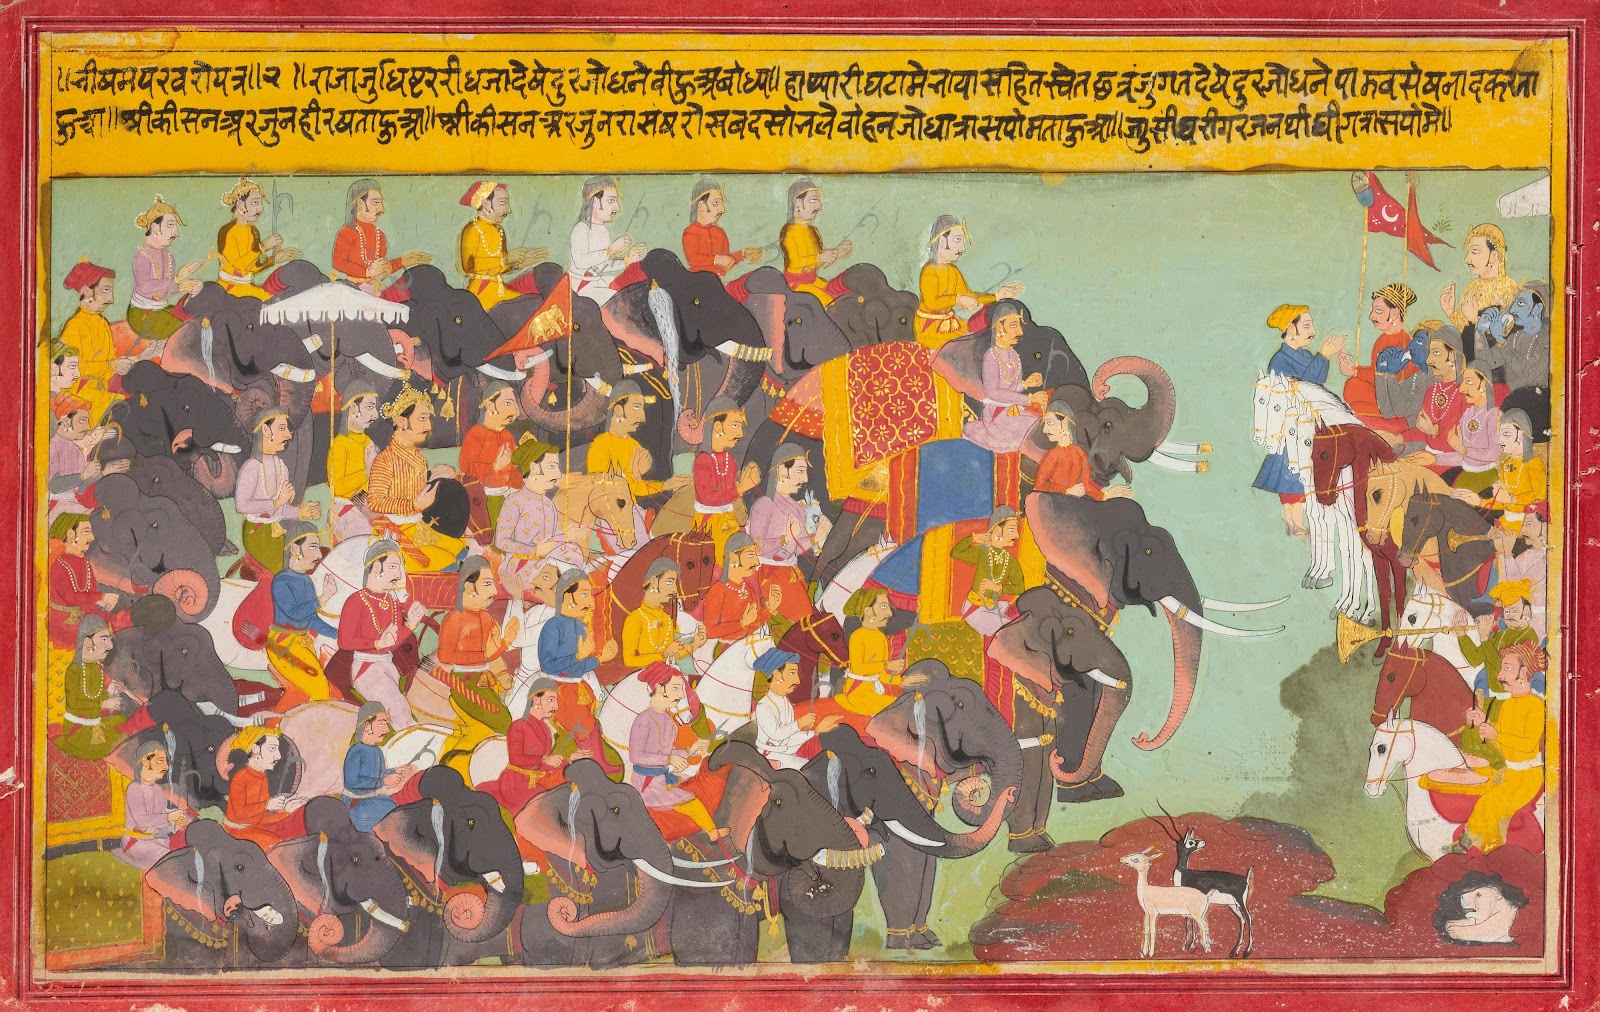 ॥ भीषमपरवरोपत्र॥२॥ राजाजुधिष्टररीधजादेषेदुरजोधनेवीफुअबोध्य॥ हाथ्यारीघटामेचोयासहितस्वेतछत्रंजुगतदेषेदुरजोधनेपांडवसंषनादकरता
फुआ॥श्रीकीसनअरजुनहीरषताफुआ॥श्रीकीसनअरजुनरासंषरोसबदसोनलेवोहनजोधात्रासपांमताफुआ॥ज्युसीघरीगरजनथीम्रीगत्रासपांमे॥